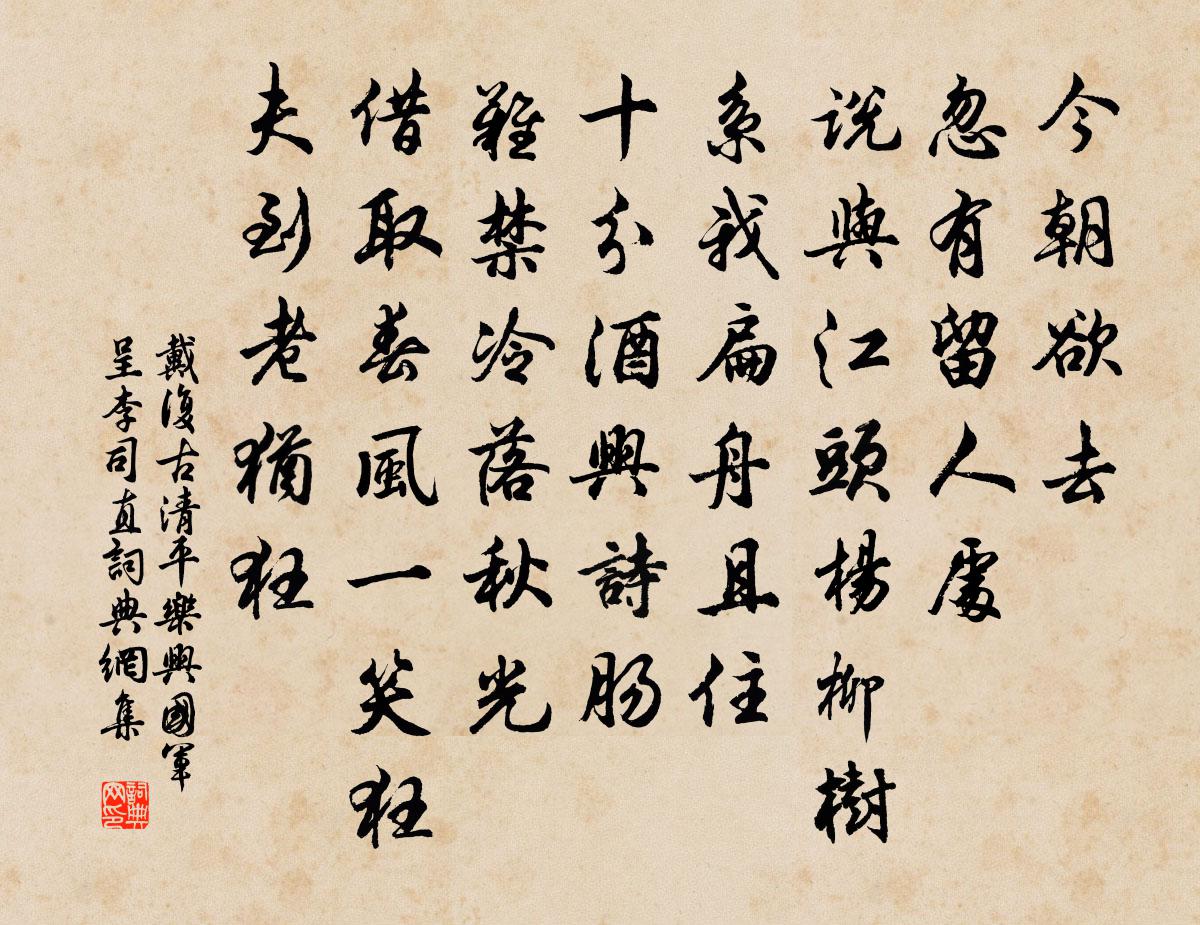 今朝欲去
忽有留人處
說與江頭楊柳樹
系我扁舟且住
十分酒興詩腸
難禁冷落秋光
借取春風一笑狂
夫到老猶狂
戴復古清平樂興國軍
呈李司直詞典網集
詞典
网印